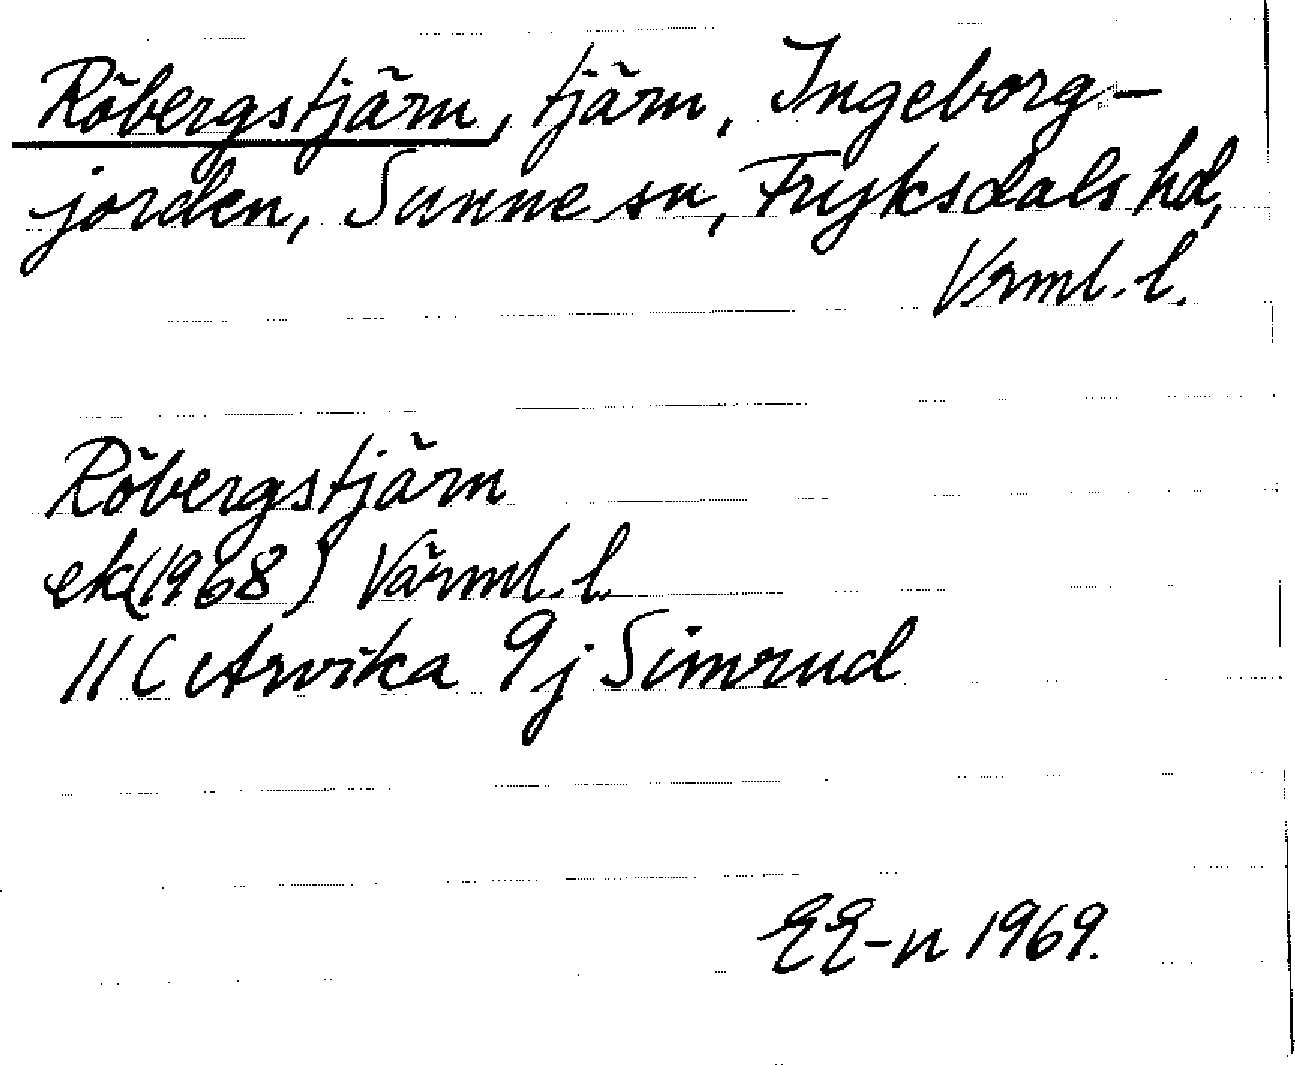 Röbergstjärn, tjärn, Ingeborg-
jorden, Sunne sn, Fryksdals hd,
Vrml. l.
Röbergstjärn
ek(1968) Värml. l.
11C Arvika 9j Simrud
EE-n 1969.